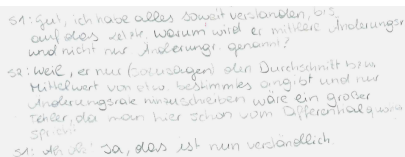 S1: Gut, ich habe alles soweit verstanden, bis
auf das letzte. Warum wird er mittlere Änderungsr
und nicht nur Änderungr. genannt?
S2: Weil, er nur (sozusagen) den Durchschnitt bzw.
Mittelwert von etw. bestimmtes angibt und nur
Änderungsrate hinzuschreiben wäre ein großer
Fehler, da man hier schon vom Differential
spricht.
S1: Ja, das ist nun verständlich